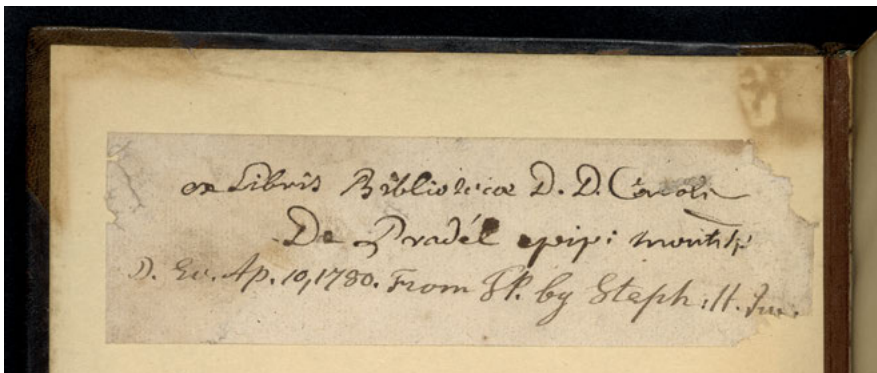 ex Libris Bibliotecæ D. D. Caroli
De Pradél epipi montisp
D. Ap. 10, 1780. From by Steph: H.